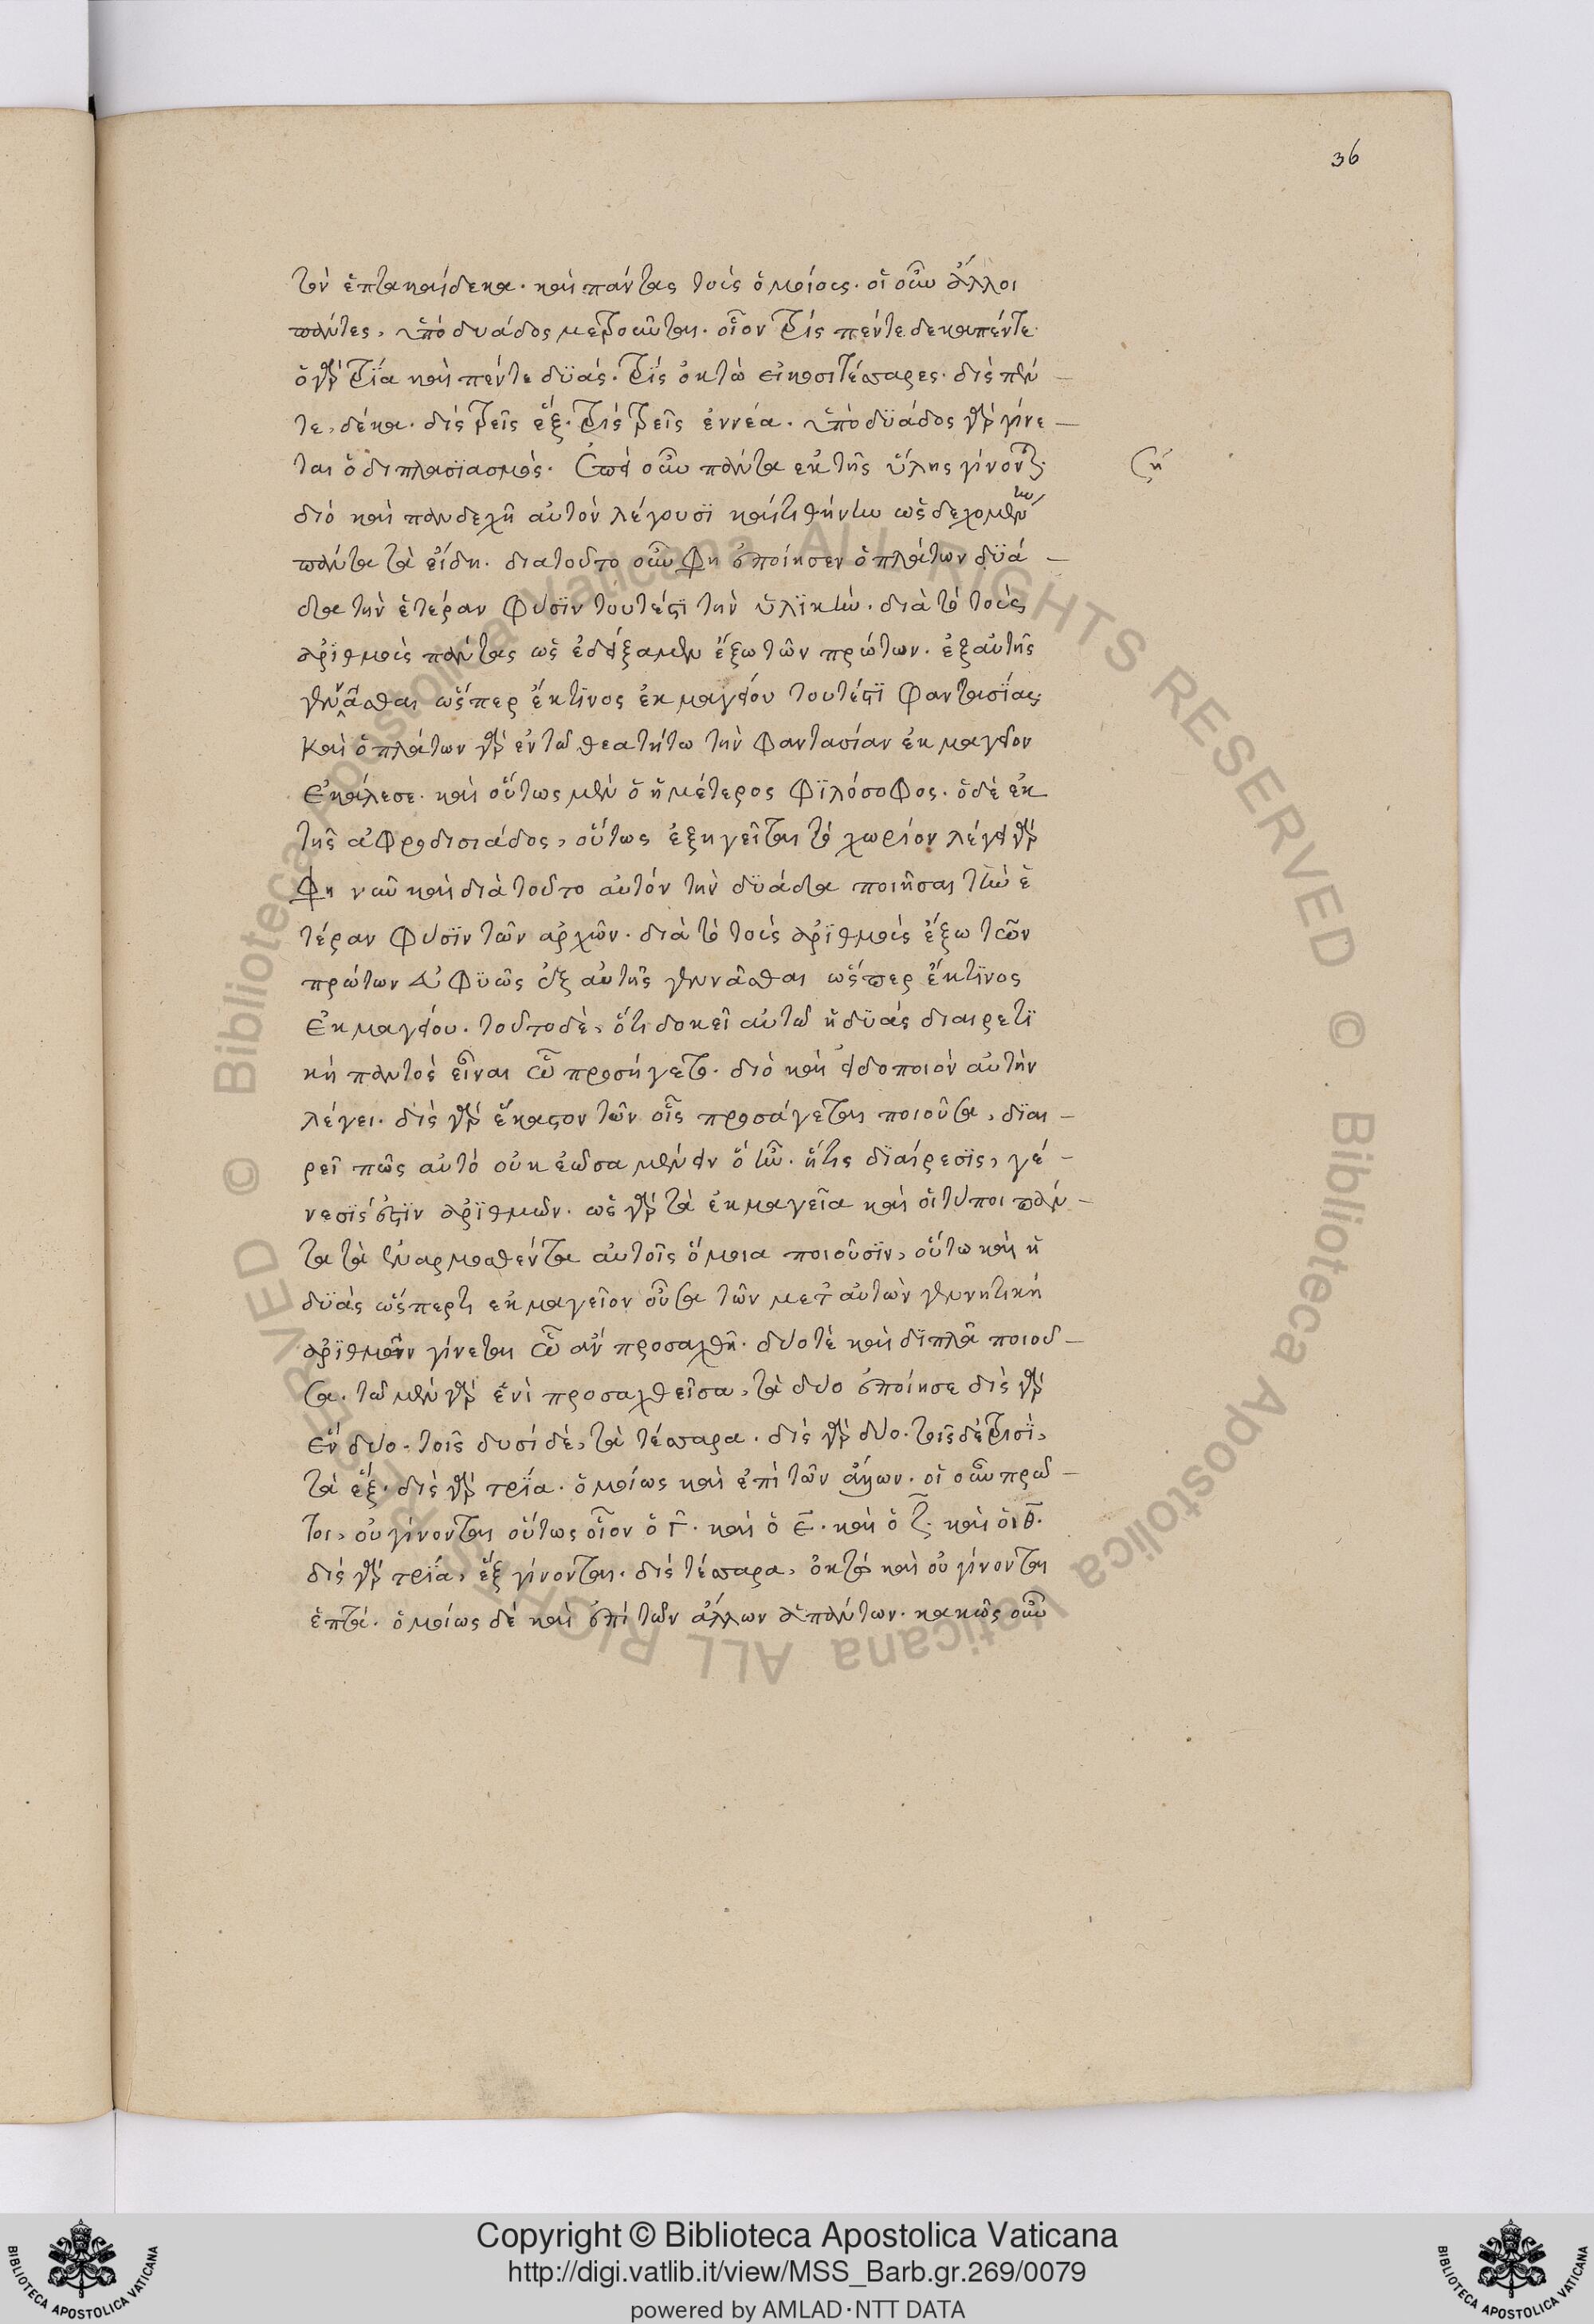 36
τὸν ἑπτακαίδεκα. καὶ πάντας τοὺς ὁμοίους. οἱ οὖν ἄλλοι
πάντες, ὑπὸ δυάδος μετροῦνται. οἷον τρὶς πέντε δεκαπέντε.
ὁ γὰρ τρία καὶ πέντε δϋάς. τρὶς ὀκτὼ εἰκοσιτέσσαρες. δὶς πέν
τε, δέκα. δὶς τρεῖς ἕξ. τρὶς τρεῖς ἐννέα. ὑπὸ δϋάδος γὰρ γίνε
ται ὁ διπλασϊασμός. ἐπεὶ οὖν πάντα ἐκ τῆς ὕλης γίνονται.
ση
διὸ καὶ πανδεχῆ αὐτὸν λέγουσϊ καὶ τιθήνην ὡς δεχομένην
πάντα τὰ εἴδη. διατοῦτο οὖν φη ἐποίησεν ὁ πλάτων δϋά
δα τὴν ἑτέραν φύσϊν τουτέστϊ τὴν ὑλϊκὴν. διὰ τὸ τοὺς
ἀρϊθμοὺς πάντας ὡς ἐδείξαμεν ἔξω τῶν πρώτων. ἐξ αὐτῆς
γεννᾶσθαι ὥσπερ ἔκ τϊνος ἐκμαγείου τουτέστϊ φαντασϊας.
καὶ ὁ πλάτων γὰρ ἐν τῶ θεατήτω τὴν φαντασίαν ἐκμαγεῖον
ἐκάλεσε. καὶ οὕτως μὲν ὁ ἡμέτερος φϊλόσοφος. ὁ δὲ ἐκ
τῆς ἀφροδισιάδος, οὕτως ἐξηγεῖται τὸ χωρίον λέγει γὰρ
φη νῦν καὶ διὰ τοῦτο αὐτόν τὴν δϋάδα ποιῆσαι τὴν ἑ
τέραν φύσϊν τῶν ἀρχῶν. διὰ τὸ τοὺς ἀρϊθμοὺς ἔξω τῶν
πρώτων εὐφϋῶς ἐξ αὐτῆς γεννᾶσθαι ὥσπερ ἔκ τϊνος
ἐκμαγείου. τοῦτο δὲ, ὅτι δοκεῖ αὐτῶ ἡ δϋάς διαιρετϊ
κή παντὸς εἶναι ὧ προσήγετο. διὸ καὶ εἰδοποιὸν αὐτὴν
λέγει. δὶς γὰρ ἕκαστον τῶν οἷς προσάγεται ποιοῦσα, δϊαι
ρεῖ πῶς αὐτό οὐκ ἐῶσα μένειν ὅ ἦν. ἥτις δϊαίρεσϊς, γέ
νεσϊς ἐστϊν ἀρϊθμῶν. ὡς γὰρ τὰ ἐκμαγεῖα καὶ οἱ τύποι πάν
τα τὰ ἐναρμοσθέντα αὐτοῖς ὅμοια ποιοῦσϊν, οὕτω καὶ ἡ
δϋάς ὥσπερ τι ἐκμαγεῖον οὖσα τῶν μετ' αὐτὼν γεννητική
ἀρϊθμῶν γίνεται ὧ ἂν προσαχθῆ. δύο τὲ καὶ δϊπλᾶ ποιοῦ
σα. τῶ μὲν γὰρ ἑνὶ προσαχθεῖσα, τὰ δύο ἐποίησε δὶς γὰρ
ἓν δύο. τοῖς δυσί δὲ, τὰ τέσσαρα. δὶς γὰρ δύο. τοῖς δὲ τρισϊ,
τὰ ἕξ. δὶς γὰρ τρϊα. ὁμοίως καὶ ἐπὶ τῶν ἄλλων. οἱ οὖν πρῶ
τοι, οὐ γίνονται οὕτως οἷον ὁ Γ. καὶ ὁ Ε. καὶ ὁ ζ. καὶ ὁ ιθ.
δὶς γὰρ τρϊα, ἕξ γίνονται. δὶς τέσσαρα, ὀκτὼ καὶ οὐ γίνονται
ἑπτά. ὁμοίως δὲ καὶ ἐπὶ τῶν ἄλλων ἁπάντων. κακῶς οὖν
Copyright © Biblioteca Apostolica Vaticana
http://digi.vatlib.it/view/MSS_Barb.gr.269/0079
powered by AMLAD·NTT DATA